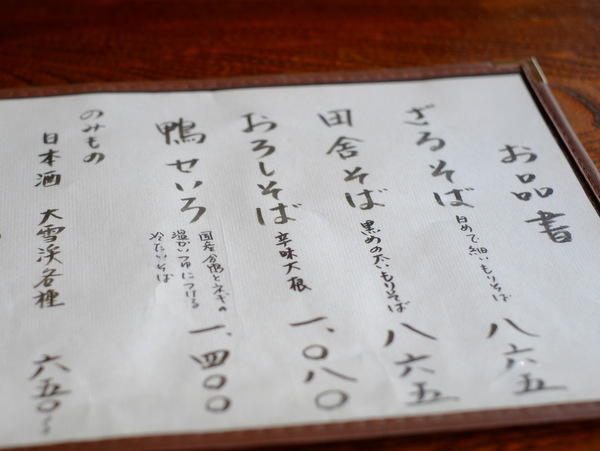 お品書
ざるそば 白めで細いもりそば 八六五
田舎そば 黒めの太いもりそば 八六五
おろしそば 辛味大根 一、〇八〇
鴨せいろ 国産合鴨とネギの
温かいつゆにつける
冷たいそば 一、四〇〇
のみもの
日本酒 大雪渓各種 六五〇〜